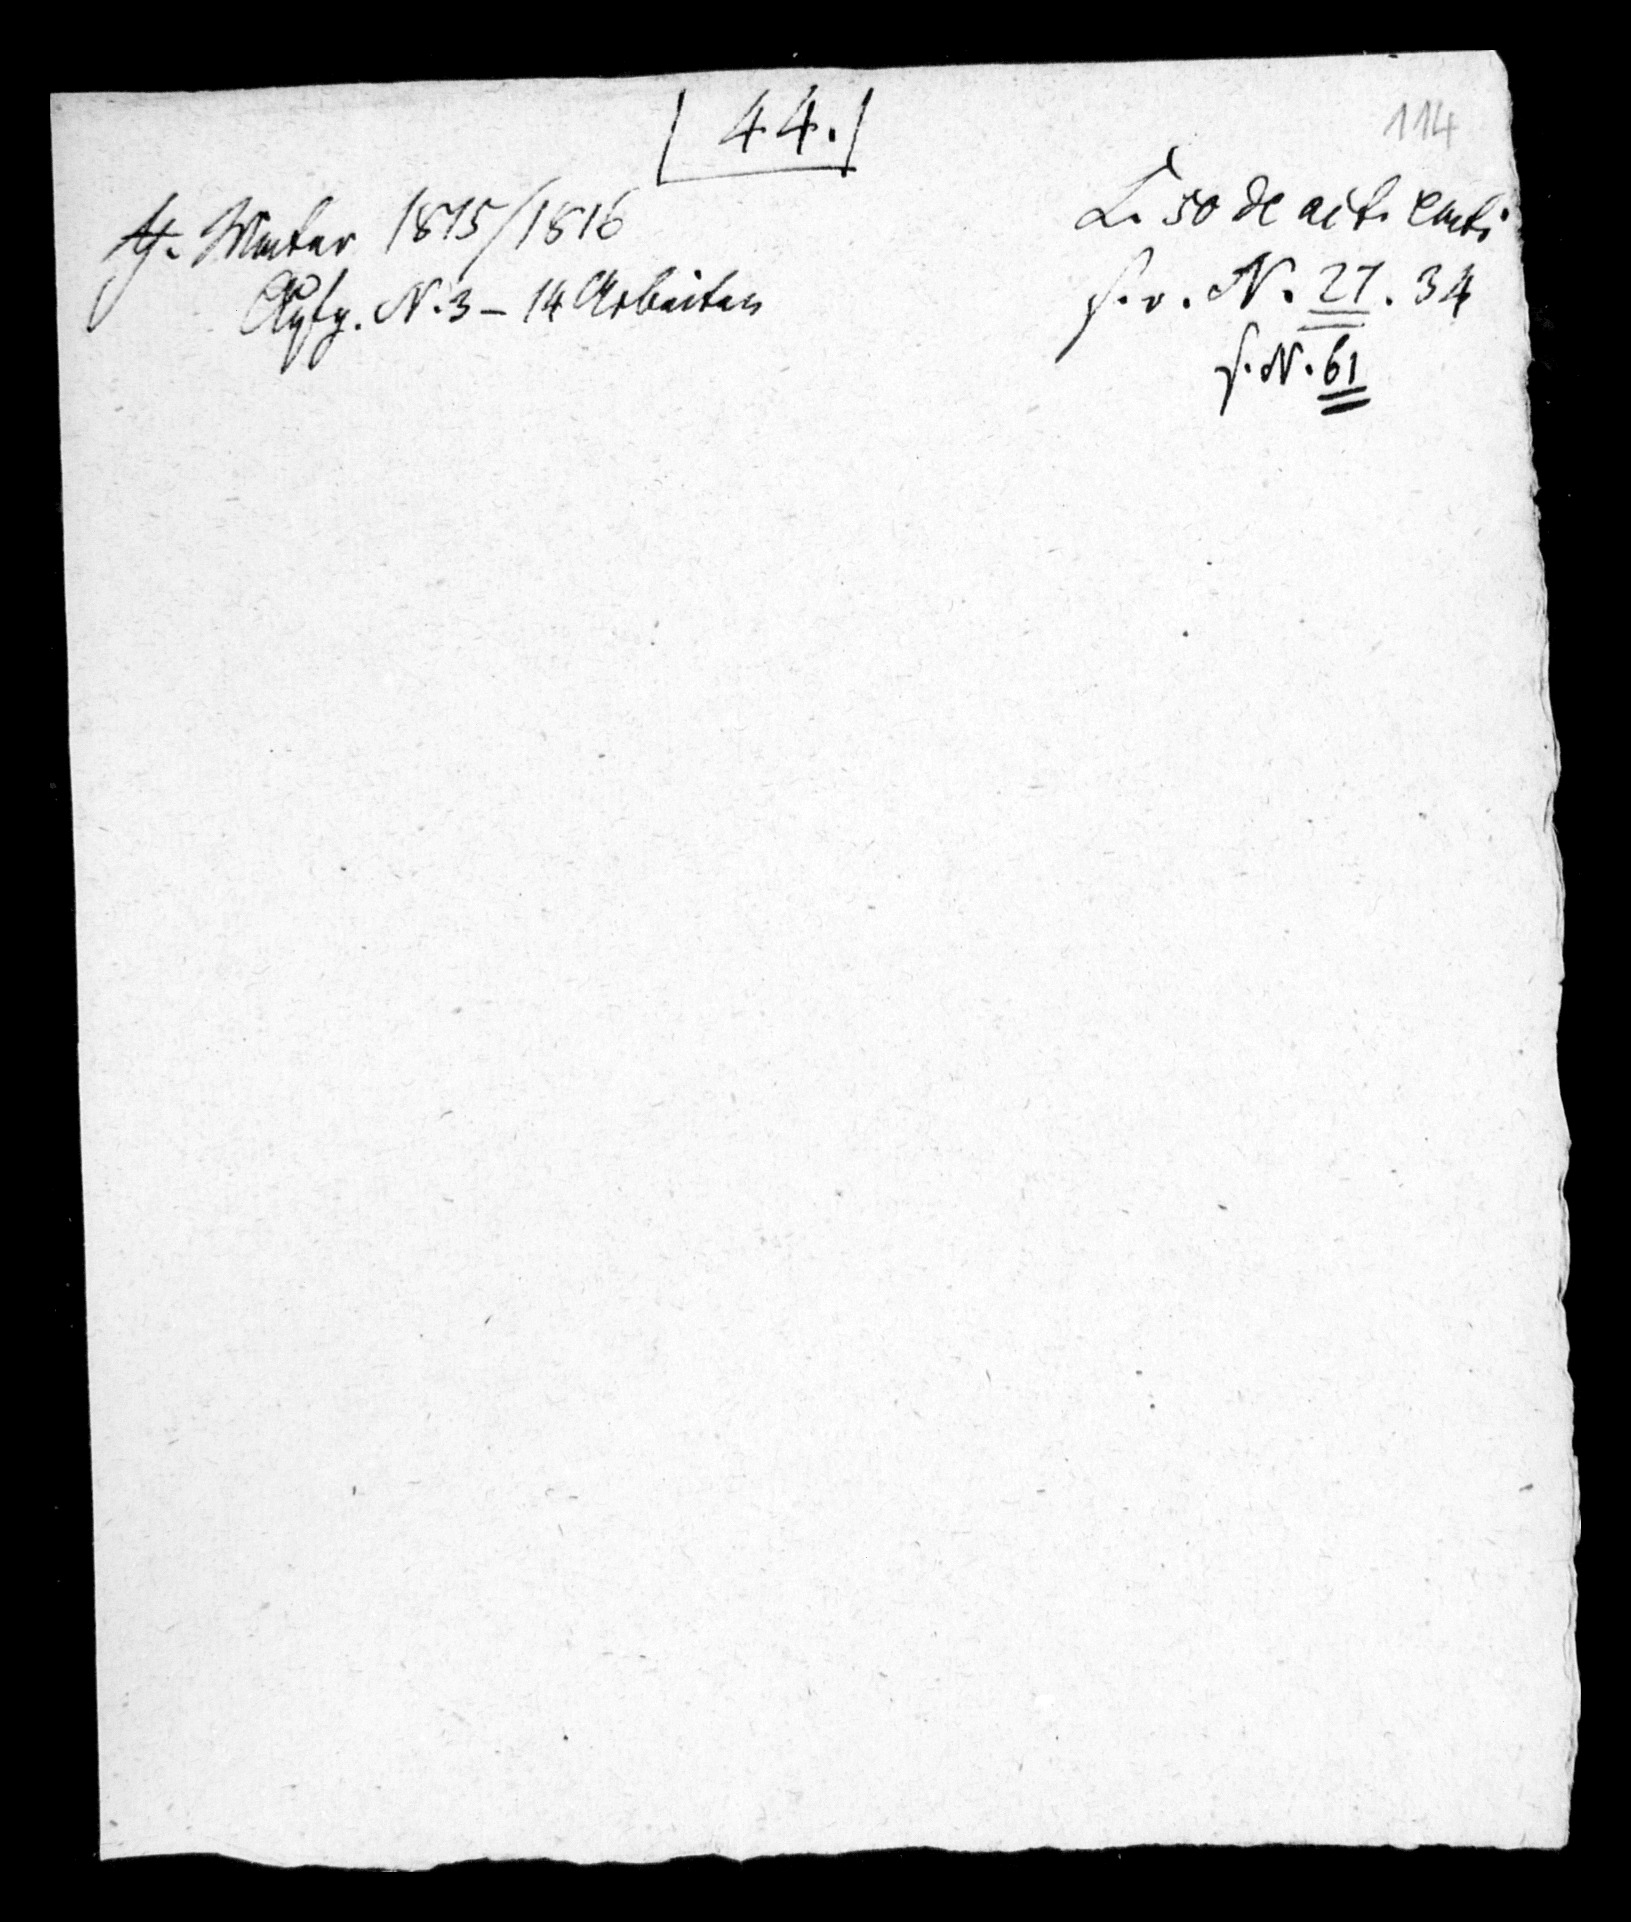 44.
114
Winter 1815/1816
Aufg. N. 3 – 14 Arbeiten
L. 50 de act. emti
s. v. N. 27. 34
s. N. 61